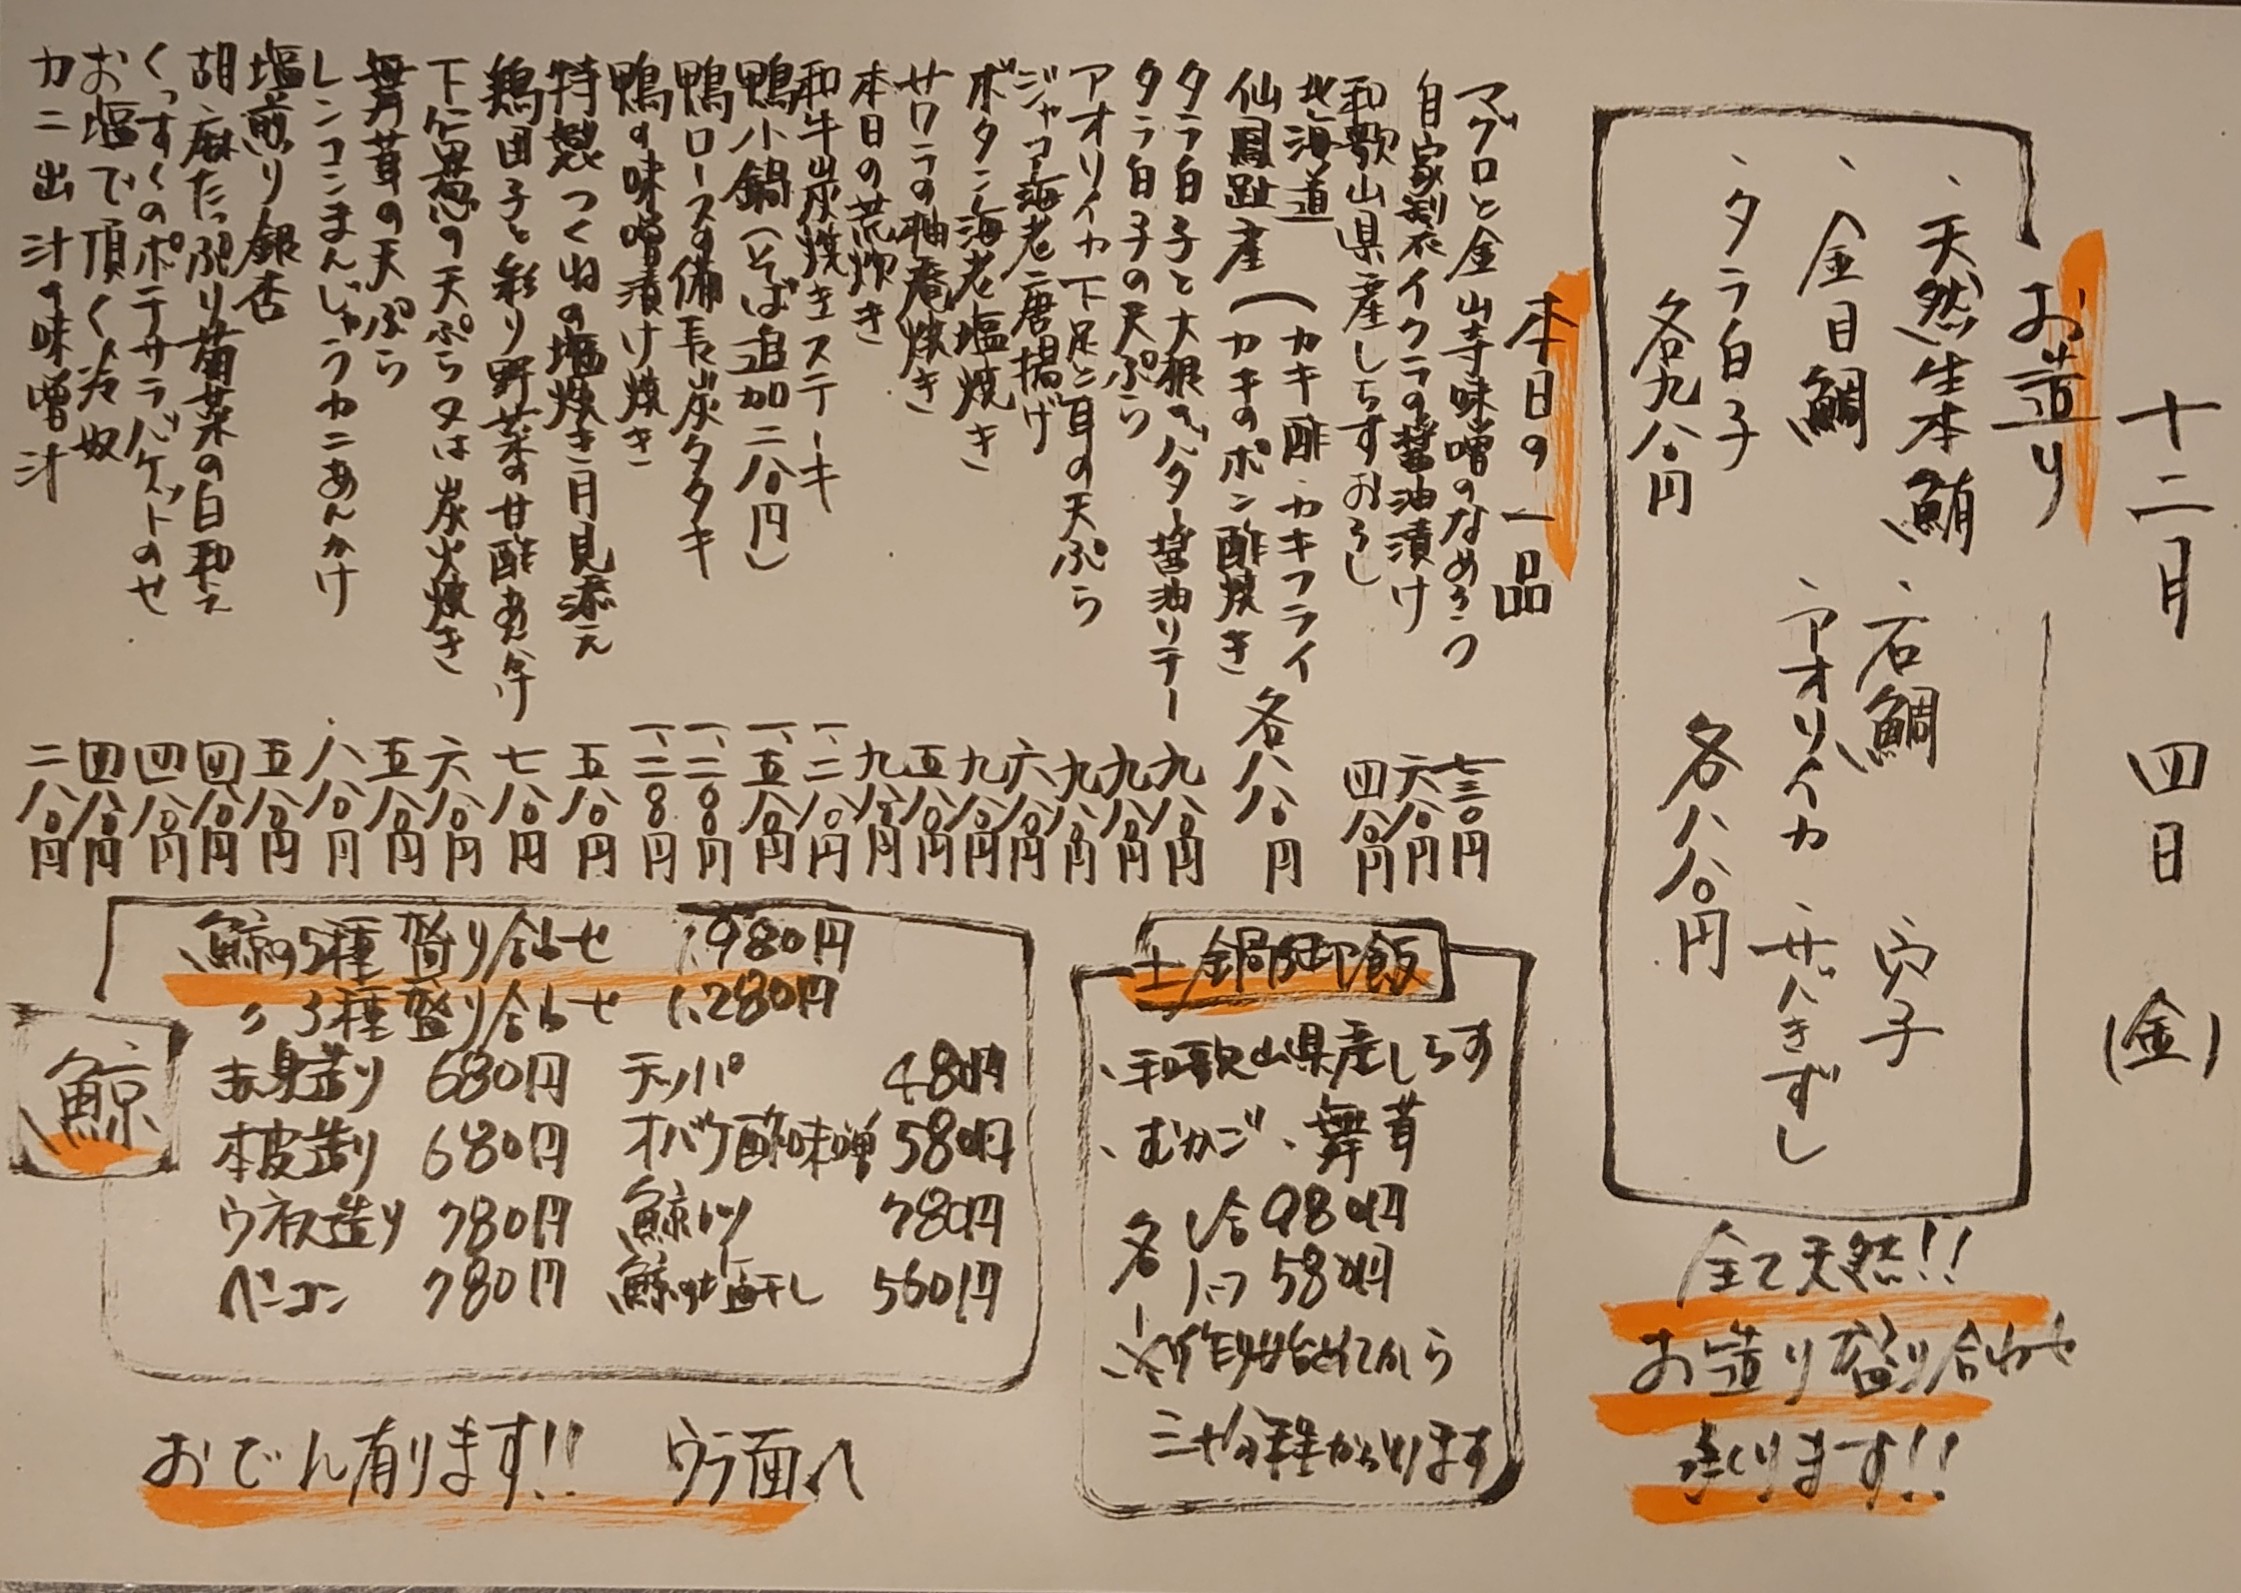 十二月四日(金)
お造り
、天然生本鮪 、石鯛 、穴子
、金目鯛 、アオリイカ 、サバきずし
、タラ白子 各八八〇円
各九八〇円
全て天然!!
お造り盛り合わせ
承ります!!
本日の一品
マグロと金山寺味噌のなめろう 七三〇円
自家製イクラの醤油漬け 六八〇円
和歌山県産しらすおろし 四八〇円
北海道
仙鳳趾産(カキ酢・カキフライ
カキのポン酢焼き 各八八〇円
タラ白子と大根のバター醤油ソテー 九八〇円
タラ白子の天ぷら 九八〇円
アオリイカ下足と耳の天ぷら 九八〇円
ジャコ海老唐揚げ 六八〇円
ボタン海老塩焼き 九八〇円
サワラの柚庵焼き 五八〇円
本日の荒炊き 九八〇円
和牛炭焼きステーキ 一、二八〇円
鴨小鍋(そば追加二八〇円) 一、五八〇円
鴨ロースの備長炭タタキ 一、二〇〇円
鴨の味噌漬け焼き 一、二〇〇円
特製つくねの塩焼き月見添え 五八〇円
鶏団子と彩り野菜の甘酢あんかけ 七八〇円
下仁田葱の天ぷら又は炭火焼き 六八〇円
舞茸の天ぷら 五八〇円
レンコンまんじゅうカニあんかけ 八八〇円
塩煎り銀杏 五八〇円
胡麻たっぷり菊菜の白和え 四八〇円
くっすくのポテサラバゲットのせ 四八〇円
お塩で頂く冷奴 四八〇円
カニ出汁の味噌汁 二八〇円
土鍋御飯
、和歌山県産しらす
、むかご、舞茸
各 1合 980円
1/2 580円
※炊き始めてから
三十分程かかります
鯨
鯨の5種盛り合わせ 1,980円
〃 3種盛り合わせ 1,280円
赤身造り 680円 テッパ 480円
本皮造り 680円 オバケ酢味噌 580円
ウネス造り 780円 鯨カツ 780円
ベーコン 780円 鯨の塩干し 560円
おでん有ります!! ウラ面へ